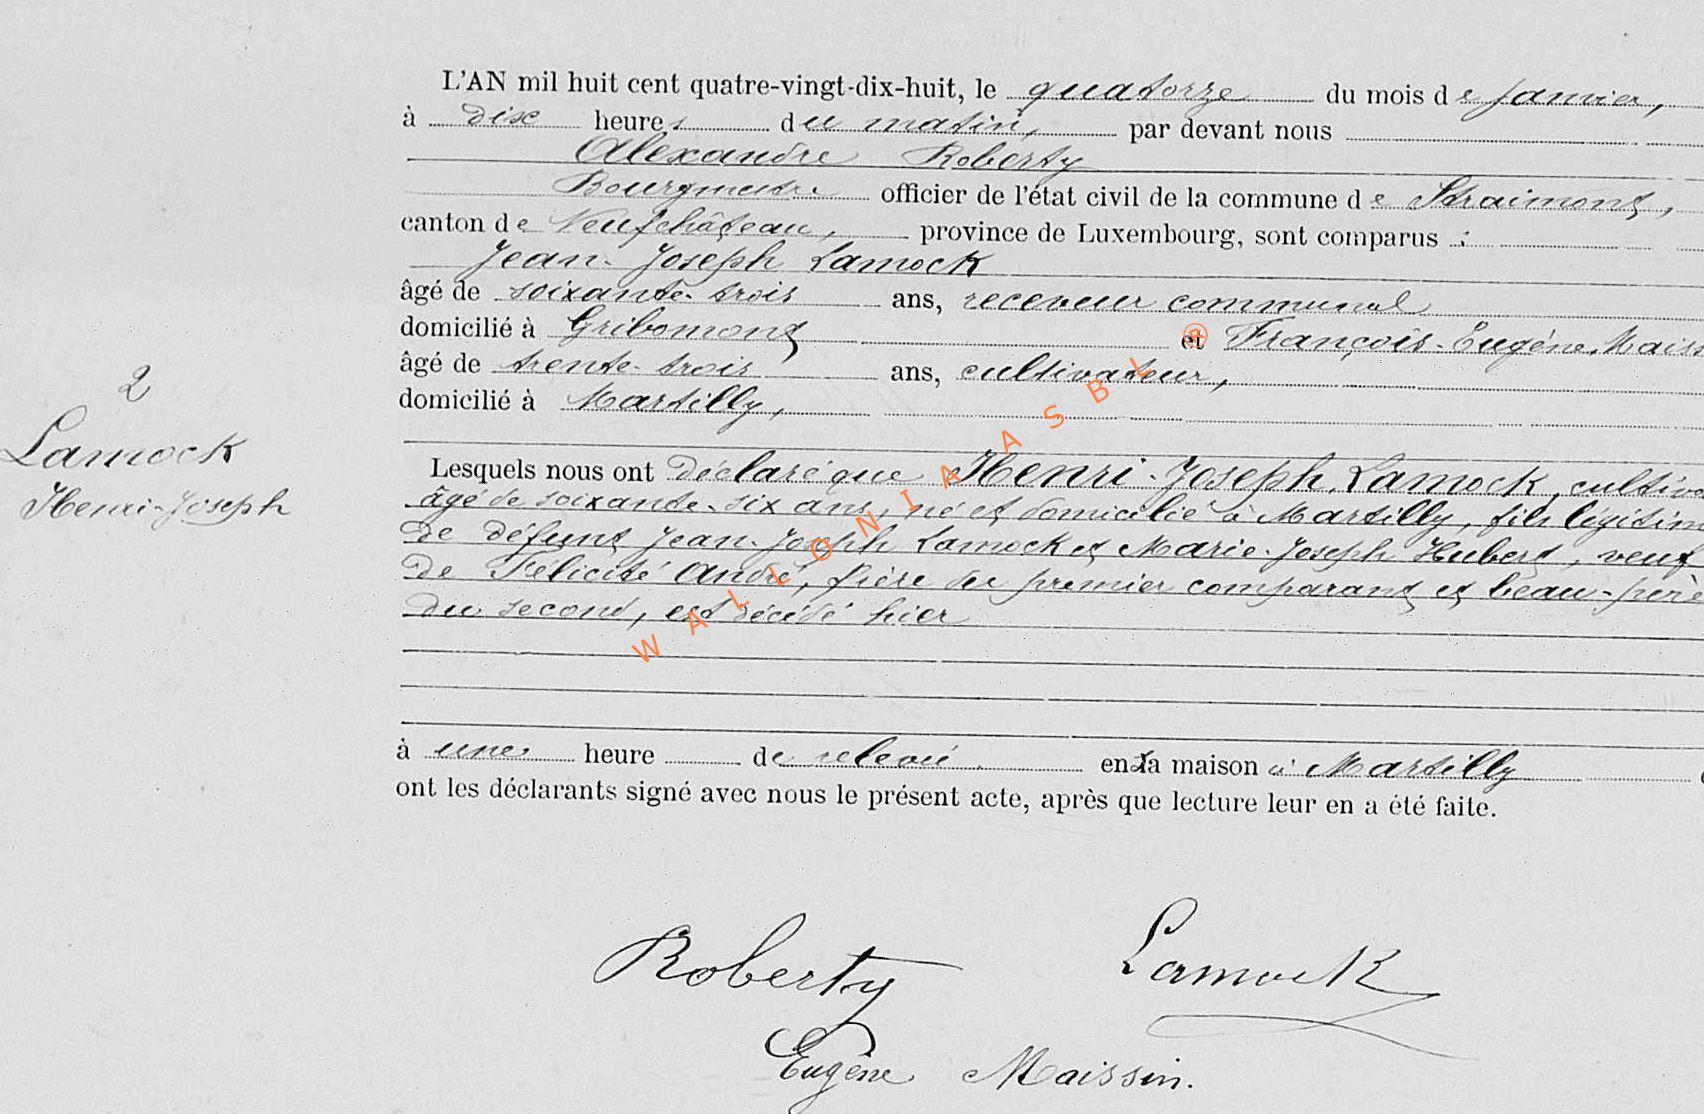 L'AN mil huit cent quatre-vingt-dix-huit, le quatorze du mois de janvier,
à dix heures du matin, par devant nous
Alexandre Roberty
Bourgmestre officier de l'état civil de la commune de Straimont,
canton de Neufchâteau, province de Luxembourg, sont comparus :
Jean-Joseph Lamock
âgé de soixante-trois ans, receveur communal
domicilié à Gribomont et François-Eugène Maiss
âgé de trente-trois ans, cultivateur,
domicilié à Martilly,
2
Lamock
Henri-Joseph
Lesquels nous ont déclaré que Henri-Joseph Lamock, cultiva
âgé de soixante-six ans, né et domicilié à Martilly, fils légitim
de défunt Jean-Joseph Lamock et Marie-Joseph Hubert, veuf
de Félicité André, frère du premier comparant et beau-père
du second, est décédé hier
à une heure de relevée en la maison à Martilly
ont les déclarants signé avec nous le présent acte, après que lecture leur en a été faite.
Roberty Lamock
Eugène Maissin.
WALLONIA ASBL ®